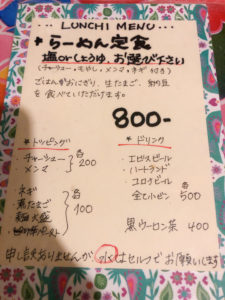 ... LUNCHI MENU...
らーめん定食
塩orしょうゆ、お選び下さい
(チャーシュー、もやし、メンマ、ネギ 付き)
ごはんかおにぎり、生たまご、納豆
を食べていただけます。
800-
*トッピング*
・チャーシュー
・メンマ
各200
・ネギ
・煮たまご
・麺大盛
各100
*ドリンク
・エビスビール
・ハートランド
・コロナビール
全て小ビン
各500
黒ウーロン茶 400
申し訳ありませんが、水はセルフでお願いします